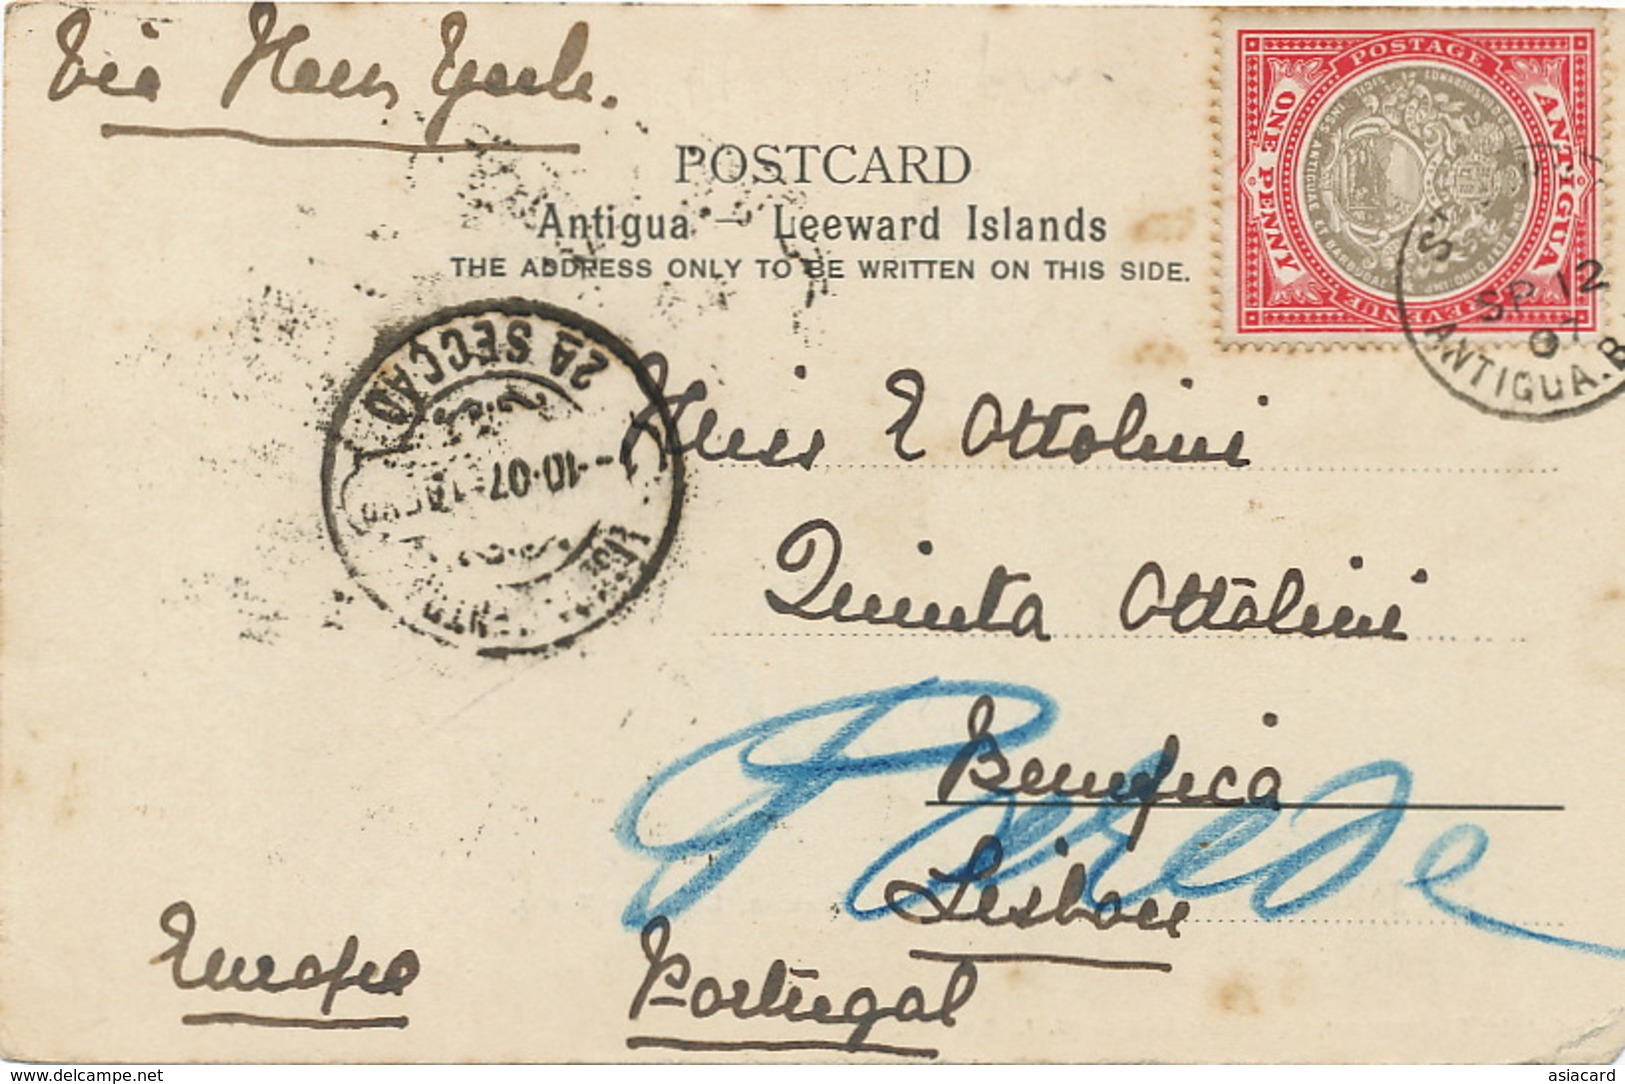 Via New York.
POSTCARD
Antigua — Leeward Islands
THE ADDRESS ONLY TO BE WRITTEN ON THIS SIDE.
POSTAGE
ANTIGUA
ONE PENNY
REVENUE
SP 12
07
ANTIGUA.B
2A SECÇÃO
-10-07
Miss E Ottolini
Quinta Ottolini
Bemfica
Lisboa
Parede
Europe
Portugal
www.delcampe.net
asiacard